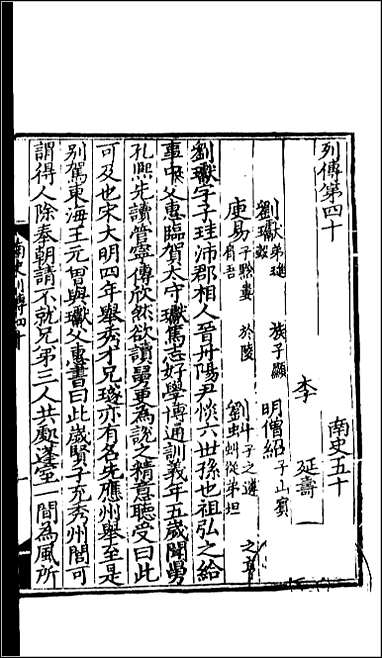 列傳第四十 南史五十
李 延壽
劉瓛 弟璡 族子顯 瑴 明僧紹 子山賓
庾易 子黔婁 於陵 肩吾 劉虯 子之遴 之亨 虯從弟坦
劉瓛字子珪沛郡相人晉丹陽尹惔六世孫也祖弘之給
事中父惠臨賀太守瓛篤志好學博通訓義年五歲聞舅
孔熙先讀管寧傳欣然欲讀舅更為說之精意聽受曰此
可及也宋大明四年舉秀才兄璲亦有名先應州舉至是
別駕東海王元曾與瓛父惠書曰此歲賢子充秀州閭可
謂得人除奉朝請不就兄弟三人共處蓬室一間為風所
南史列傳四十